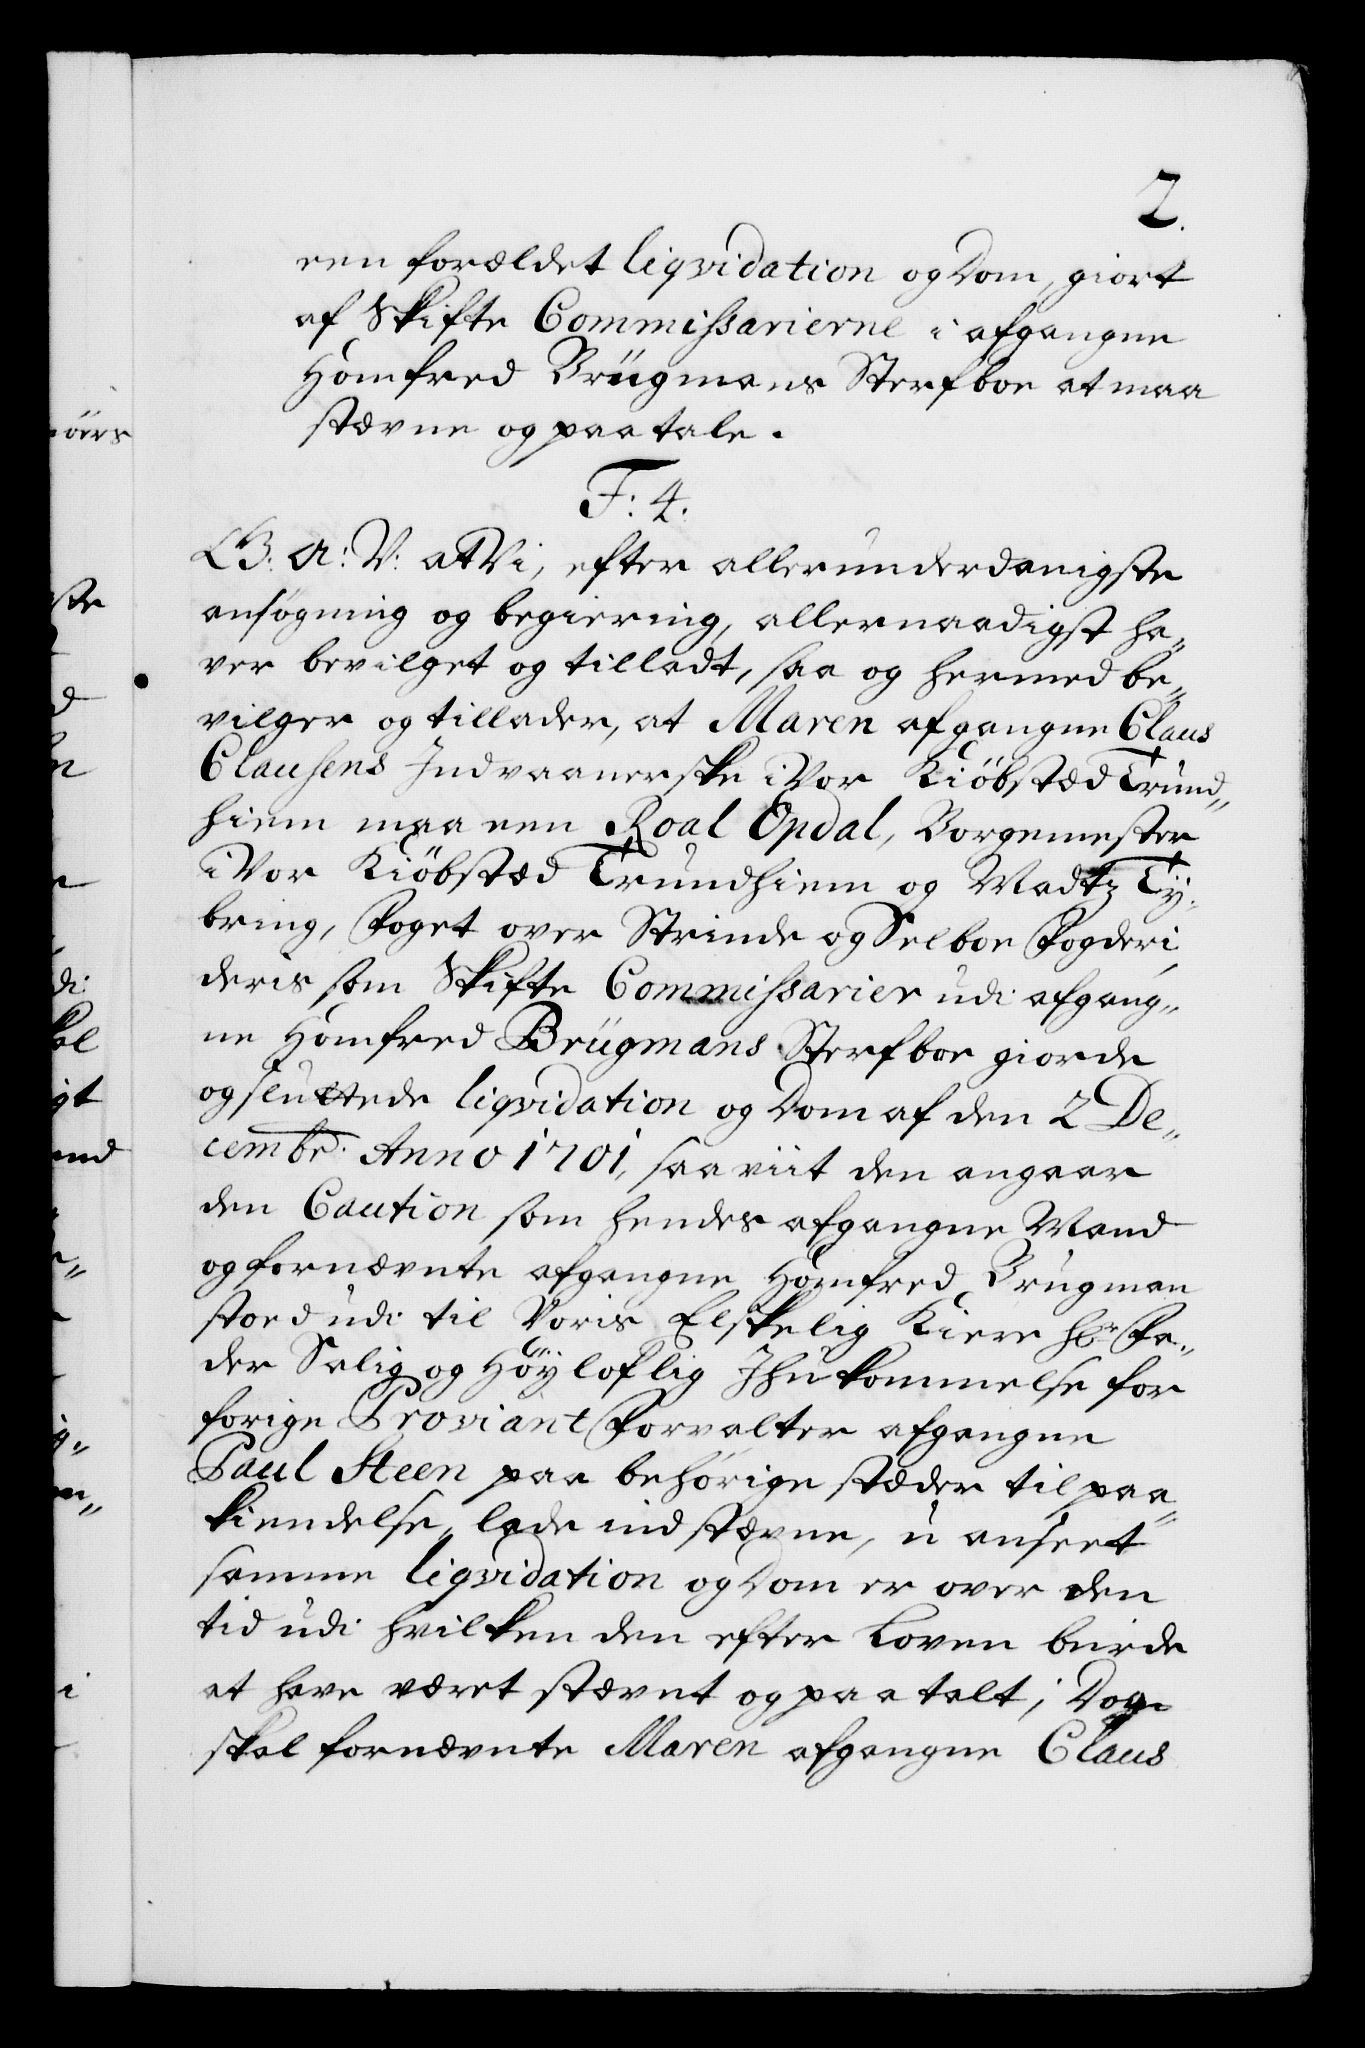 2.
een forældet liqvidation og Dom, giort
af Skifte Commissarierne i afgangne
Homfred Brügmans Sterfboe at maa
stævne og paatale.
F: 4.
G: A: V: at Vi, efter allerunderdanigste
ansøgning og begiering, allernaadigst ha„
ver bevilget og tilladt, saa og hermed be„
vilger og tillader, at Maren afgangne Claus
Clausens Indvaanerske i Vor Kiöbstæd Trund„
hiem maa een Roal Opdal, Borgemester
i Vor Kiöbstæd Trundhiem og Madtz Ty„
bring, Foget over Strinde og Selboe Fogderi,
deris som Skifte Commissarier udi afgang„
ne Homfred Brügmans Sterfboe giorde
og sluttede liqvidation og Dom af den 2 De„
cembr: Anno 1701, saa viit den angaar
den Caution som hendes afgangne Mand
og fornævnte afgangne Homfred Brugman
stoed udi til Voris Elskelig Kiere Hr Fa„
der Salig og Höyloflig Ihukommelse for
forige Proviant Forvalter afgangne
Paul Steen paa behörige stæder til paa„
kiendelse, lade indstævne, uanseet
samme liqvidation og Dom er over den
tid udi hvilken den efter Loven burde
at have været stævnt og paatalt; Dog
skal fornævnte Maren afgangne Claus